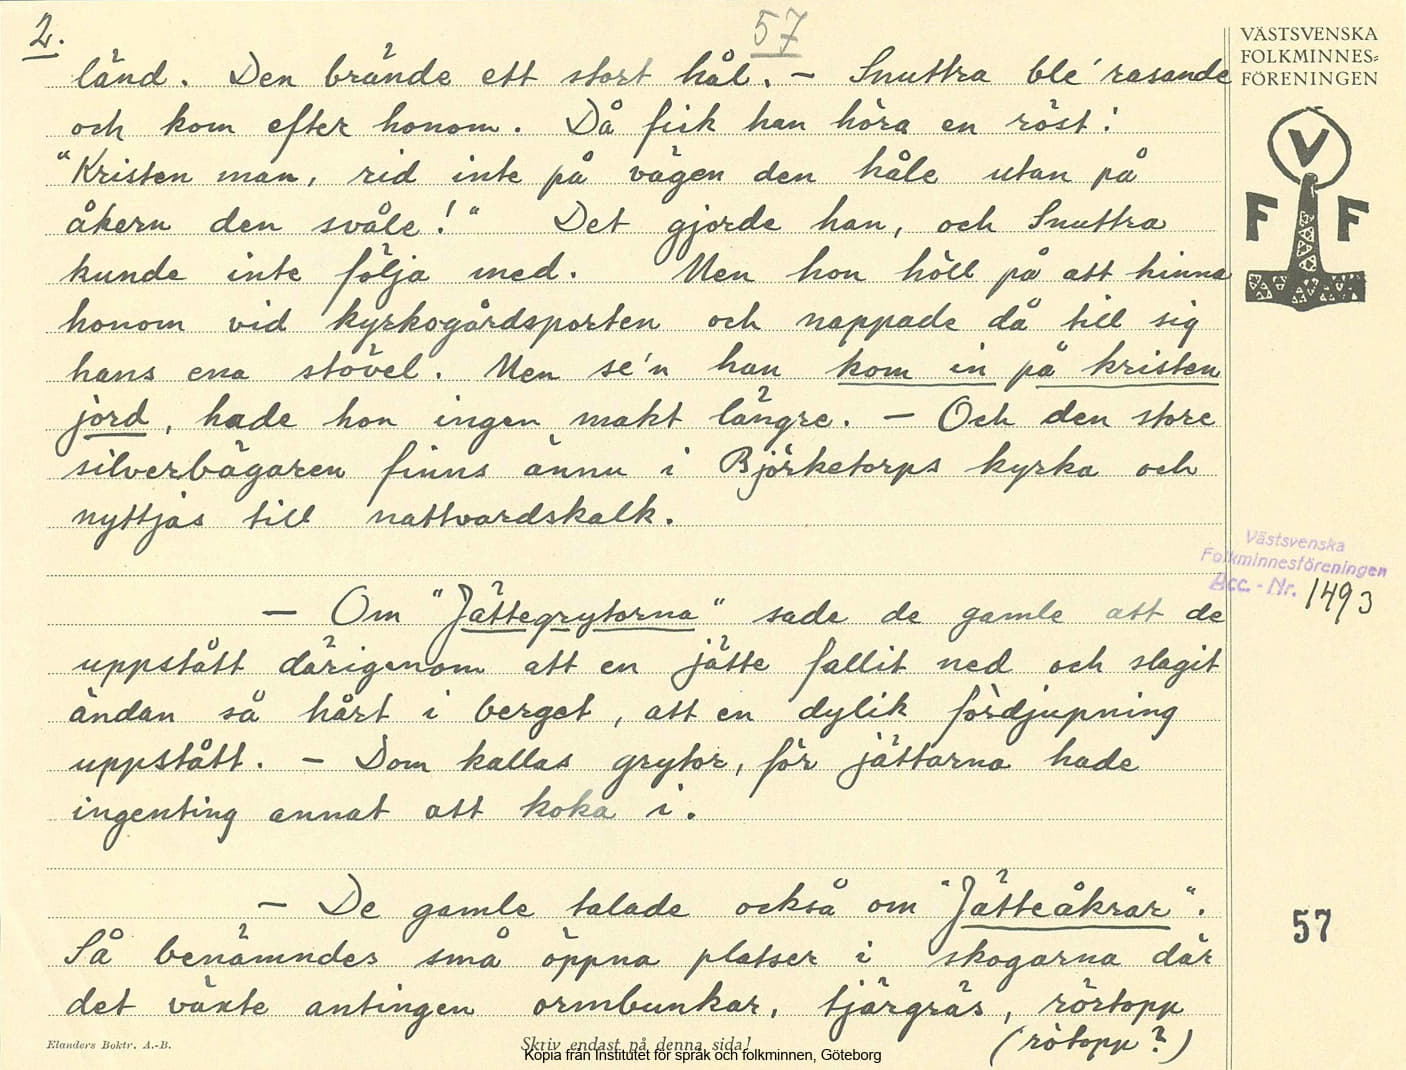 2.
57
länd. Den brände ett stort hål. – Snuttra ble' rasande
och kom efter honom. Då fick han höra en röst:
"Kristen man, rid inte på vägen den håle utan på
åkern den svåle!" Det gjorde han, och Snuttra
kunde inte följa med. Men hon höll på att hinna
honom vid kyrkogårdsporten och nappade då till sig
hans ena stövel. Men se'n han kom in på kristen
jord, hade hon ingen makt längre. – Och den store
silverbägaren finns ännu i Björketorps kyrka och
nyttjas till nattvardskalk.
– Om "Jättegrytorna" sade de gamle att de
uppstått därigenom att en jätte fallit ned och slagit
ändan så hårt i berget, att en dylik fördjupning
uppstått. – Dom kallas grytor, för jättarna hade
ingenting annat att koka i.
– De gamle talade också om "Jätteåkrar".
Så benämndes små öppna platser i skogarna där
det växte antingen ormbunkar, tjärgräs, rörtopp
(rötopp?)
VÄSTSVENSKA
FOLKMINNES=
FÖRENINGEN
V
F F
Västsvenska
Folkminnesföreningen
Acc.-Nr. 1493
57
Elanders Boktr. A.-B.
Skriv endast på denna sida!
Kopia från Institutet för språk och folkminnen, Göteborg